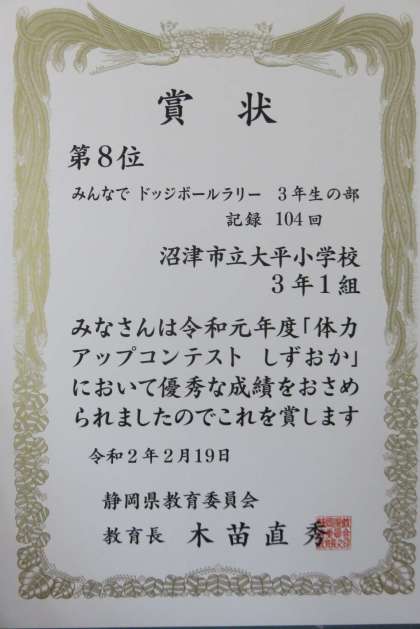 賞状
第8位
みんなで ドッジボールラリー 3年生の部
記録 104回
沼津市立大平小学校
3年1組
みなさんは令和元年度「体力
アップコンテスト しずおか」
において優秀な成績をおさめ
られましたのでこれを賞します
令和2年2月19日
静岡県教育委員会
教育長 木苗直秀